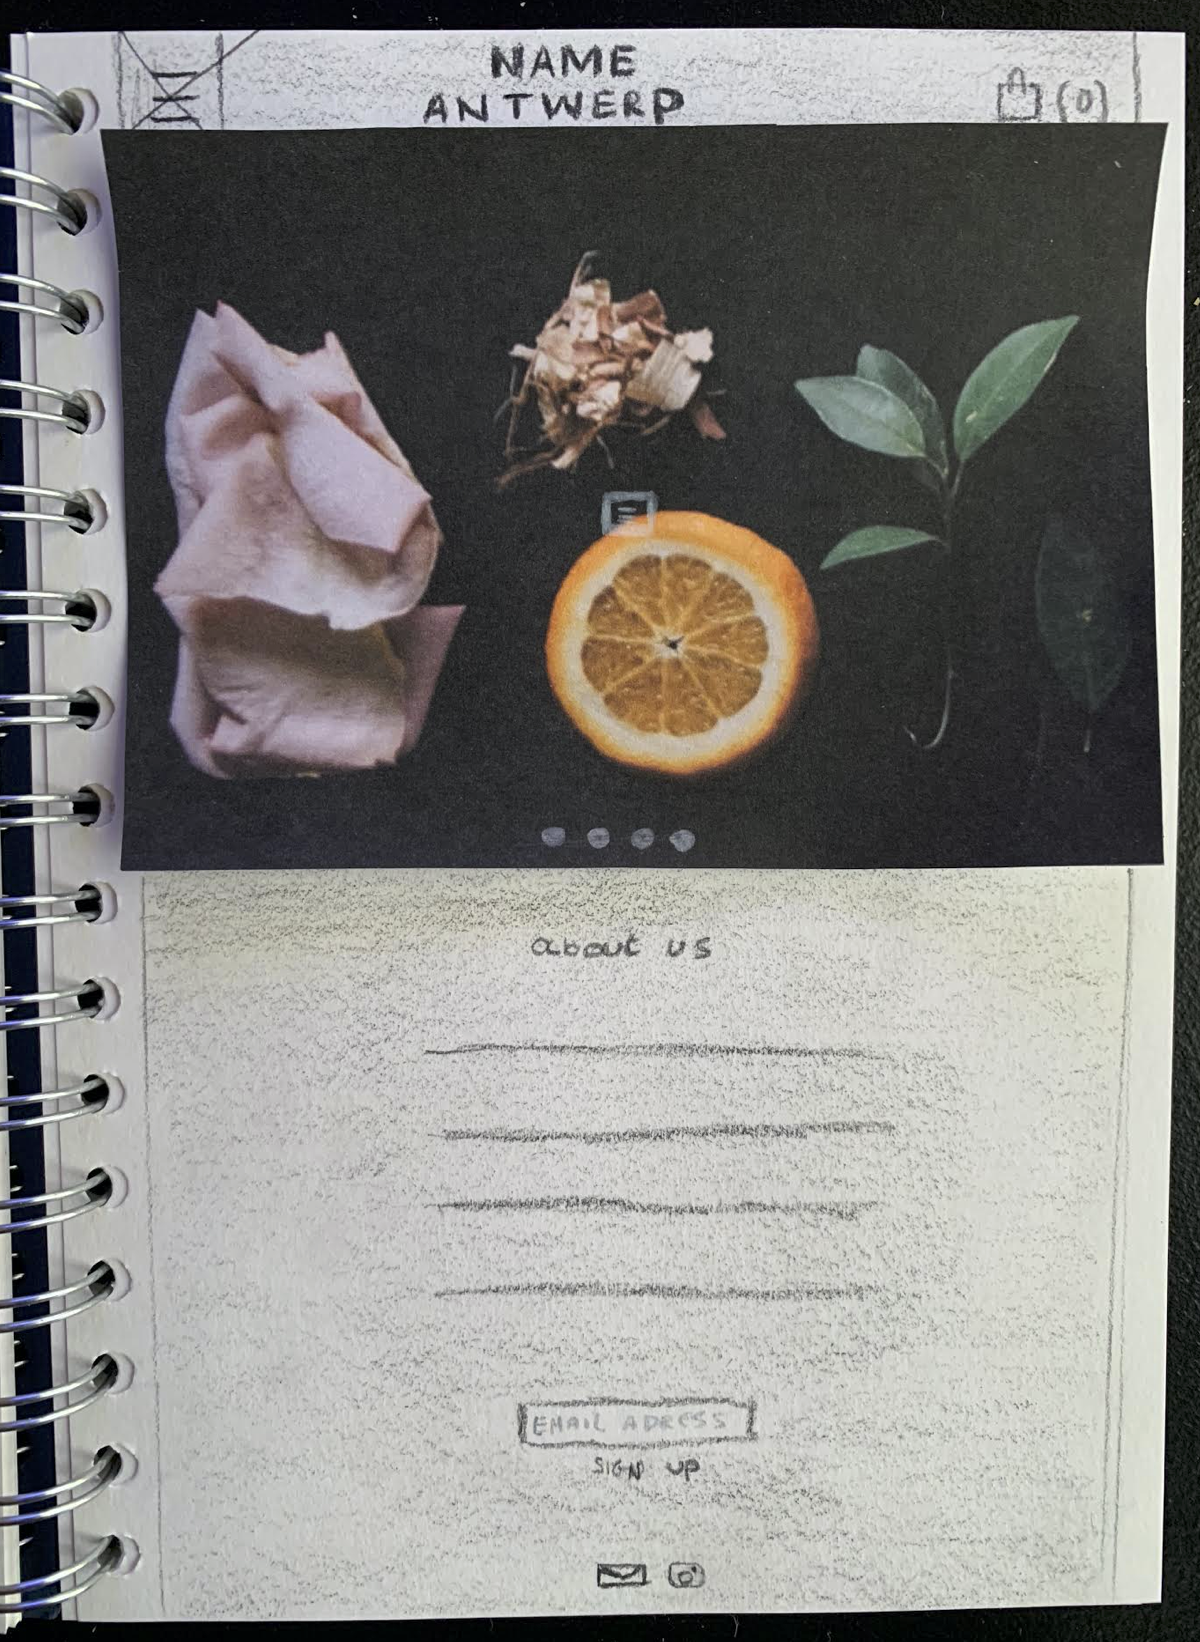 NAME
ANTWERP
(0)
about us
EMAIL ADRESS
SIGN UP